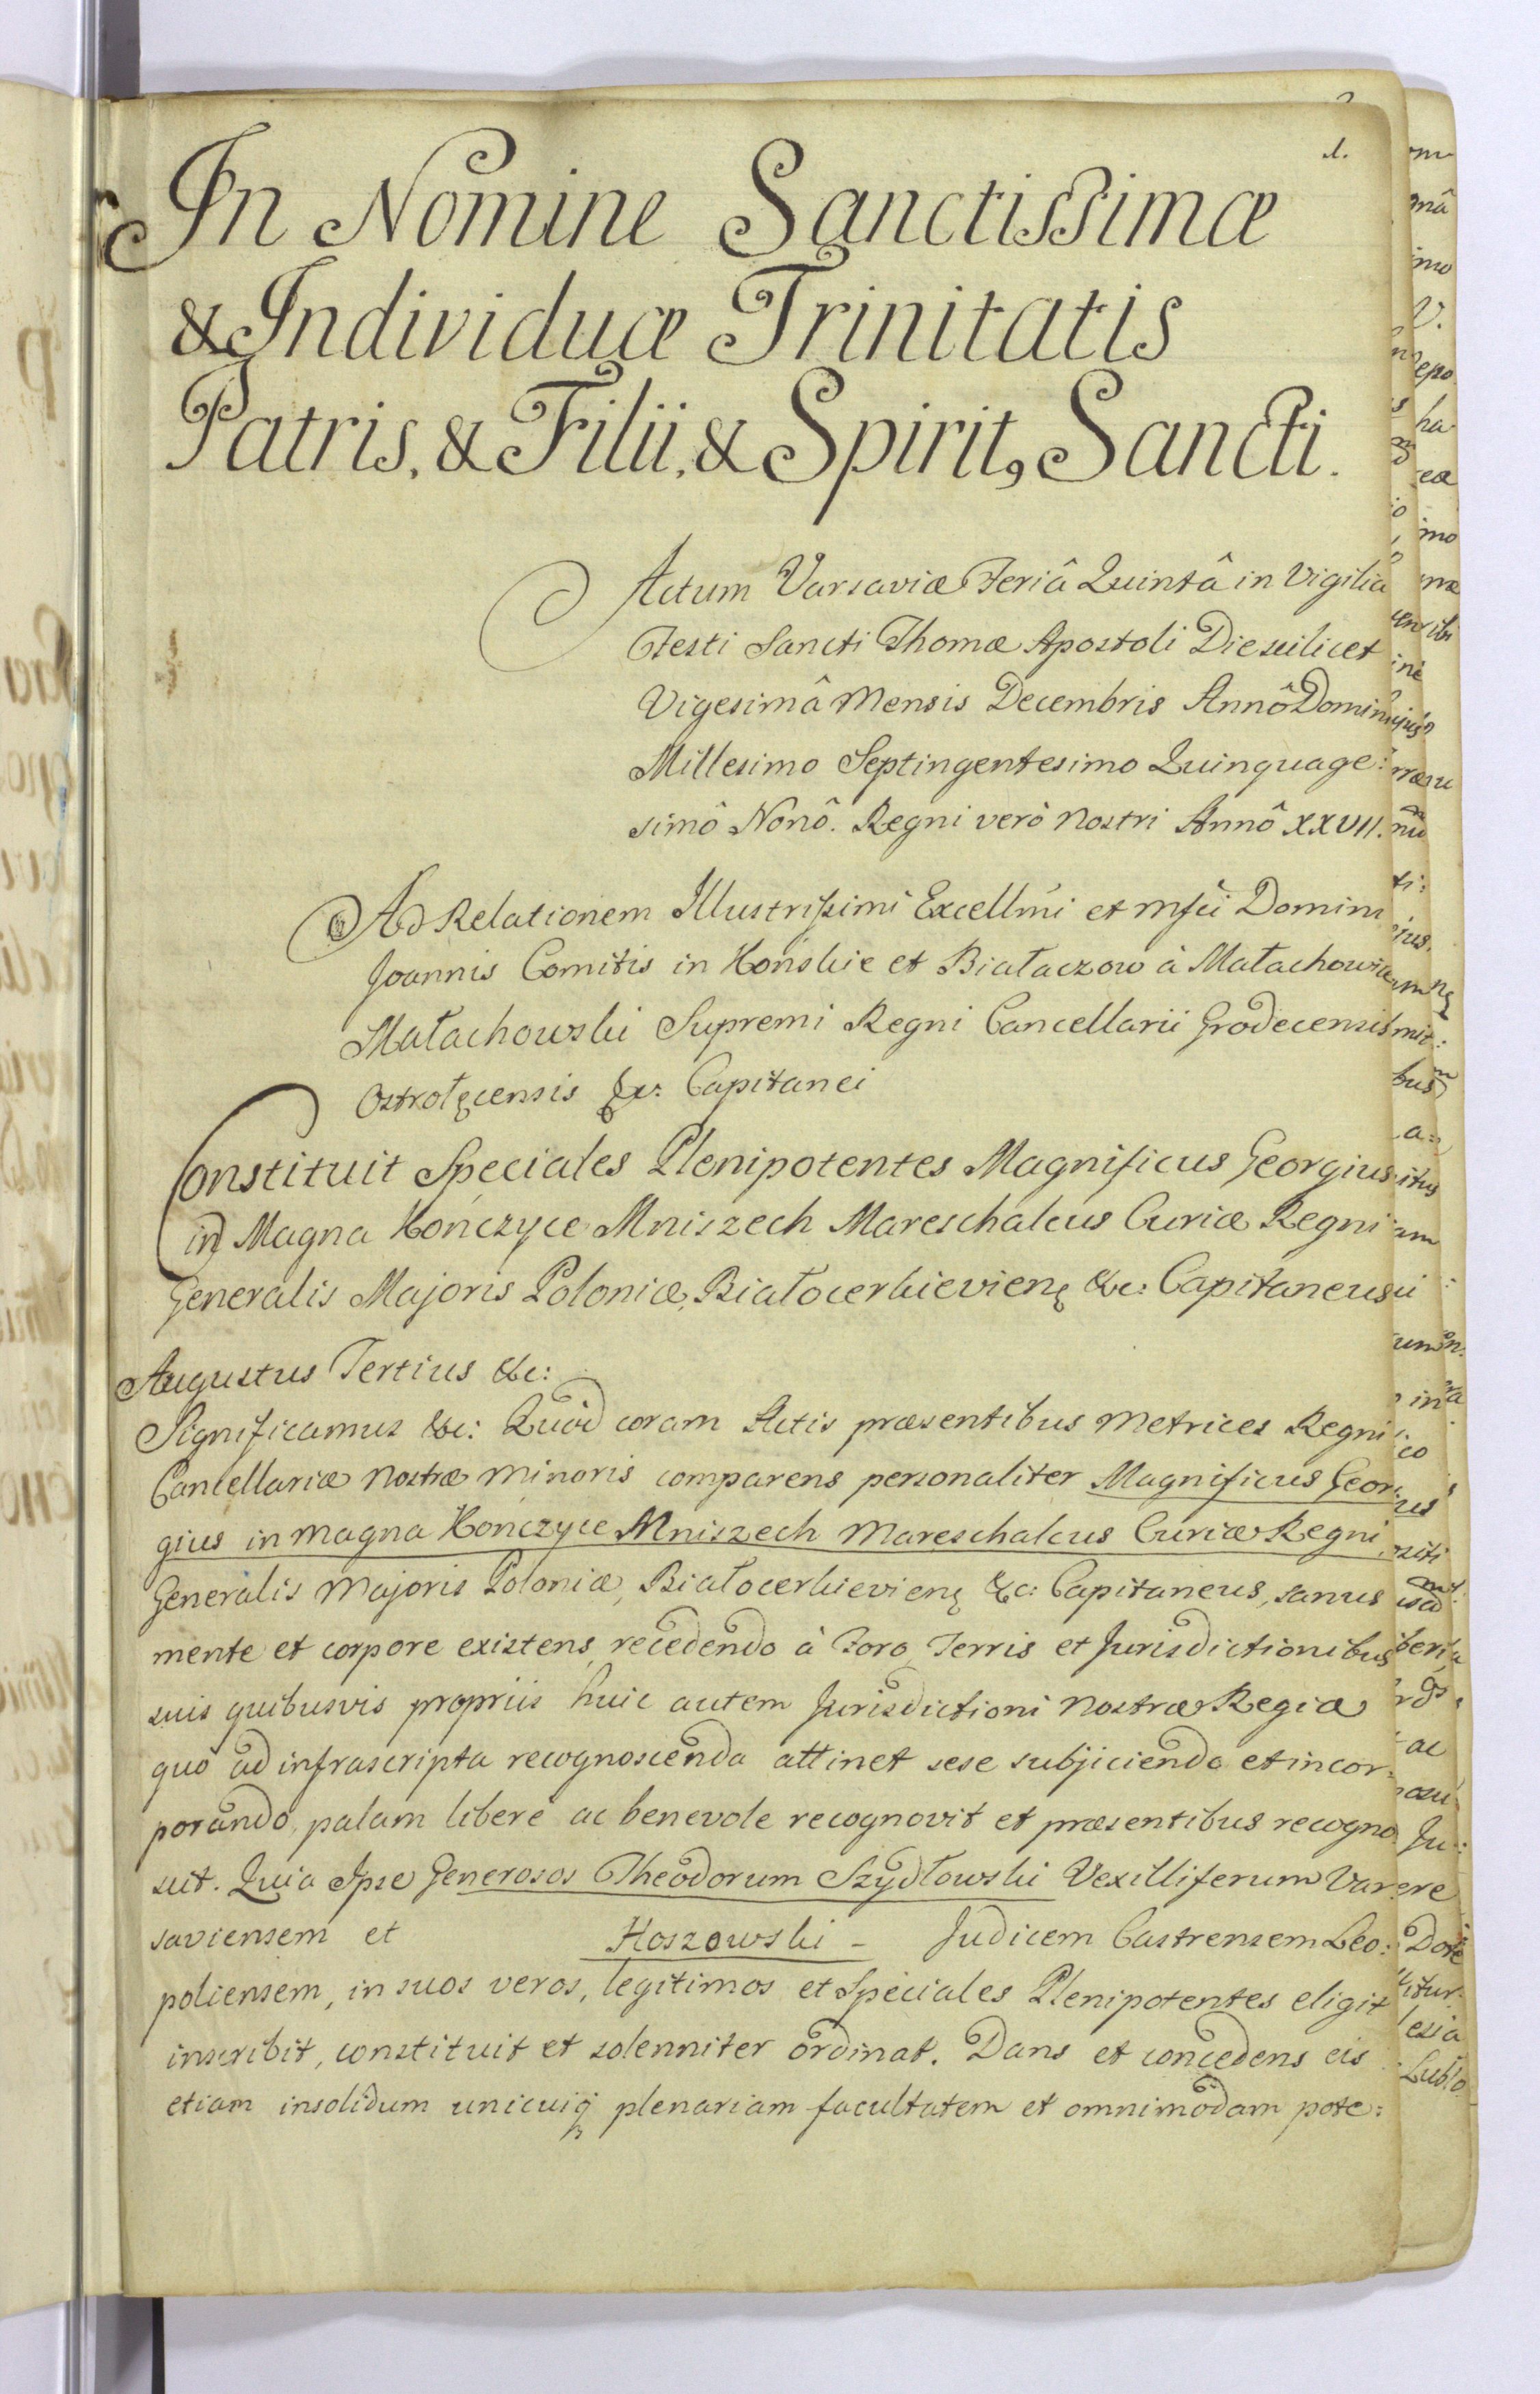 1.
In Nomine Sanctissimæ
& Individuæ Trinitatis
Patris, & Filii, & Spirit9 Sancti.
Actum Varsaviæ Feriâ Quintâ in Vigilia
Festi Sancti Thomæ Apostoli Die scilicet
Vigesimâ Mensis Decembris Annô Domini
Millesimo Septingentesimo Quinquage:
simô Nonô. Regni verò Nostri Annô XXVII.
Ad Relationem Illustrissimi Excellm̃i et Mfci Domini
Joannis Comitis in Końskie et Białaczow à Małachowice
Małachowski Supremi Regni Cancellarii Grodecensis
Ostrołęcensis &c: Capitanei
Constituit Speciales Plenipotentes Magnificus Georgius
in Magna Kończyce Mniszech Mareschalcus Curiæ Regni
Generalis Majoris Poloniæ, Białocerkievienę &c: Capitaneus
Augustus Tertius &c:
Significamus &c: Quòd coram Actis præsentibus Metrices Regni
Cancellariæ Nostræ Minoris comparens personaliter Magnificus Geor:
gius in Magna Kończyce Mniszech Mareschalcus Curiæ Regni
Generalis Majoris Poloniæ, Białocerkievienę &c: Capitaneus, sanus
mente et corpore existens, recedendo à Foro, Terris et Jurisdictionibus
suis quibusvis propriis huic autem Jurisdictioni Nostræ Regiæ
quò ad infrascripta recognoscenda attinet sese subjiciendo et incor:
porando, palam libere ac benevole recognovit et præsentibus recogno
scit. Quia Ipse Generosos Theodorum Szydłowski Vexilliferum Var
saviensem et Hoszowski - Judicem Castrensem Leo:
poliensem, in suos veros, legitimos et Speciales Plenipotentes eligit
inscribit, constituit et solenniter ordinat. Dans et concedens eis
etiam insolidum unicuiq; plenariam facultatem et omnimodam pote: